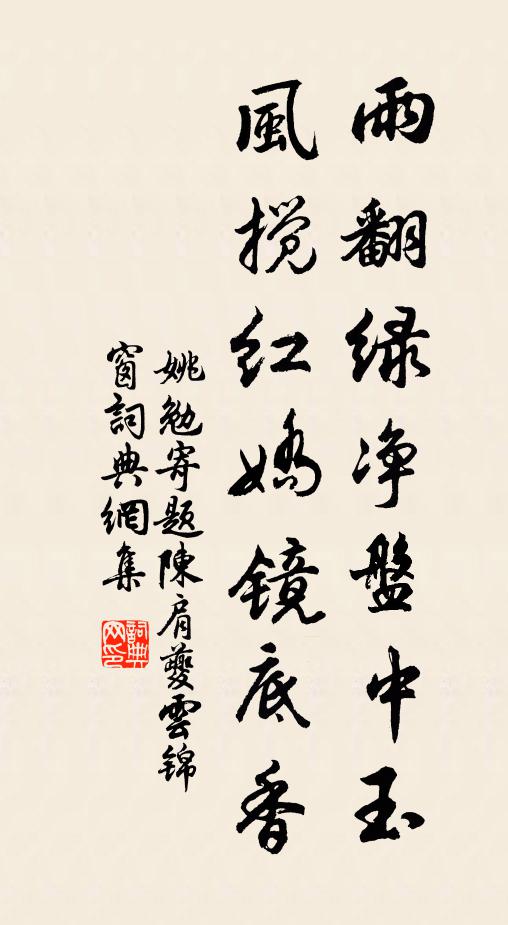 雨翻绿净盤中玉
風攪红嬌鏡底香
姚勉寄題陳肩夔雲锦
窗詞典網集
詞典
网印